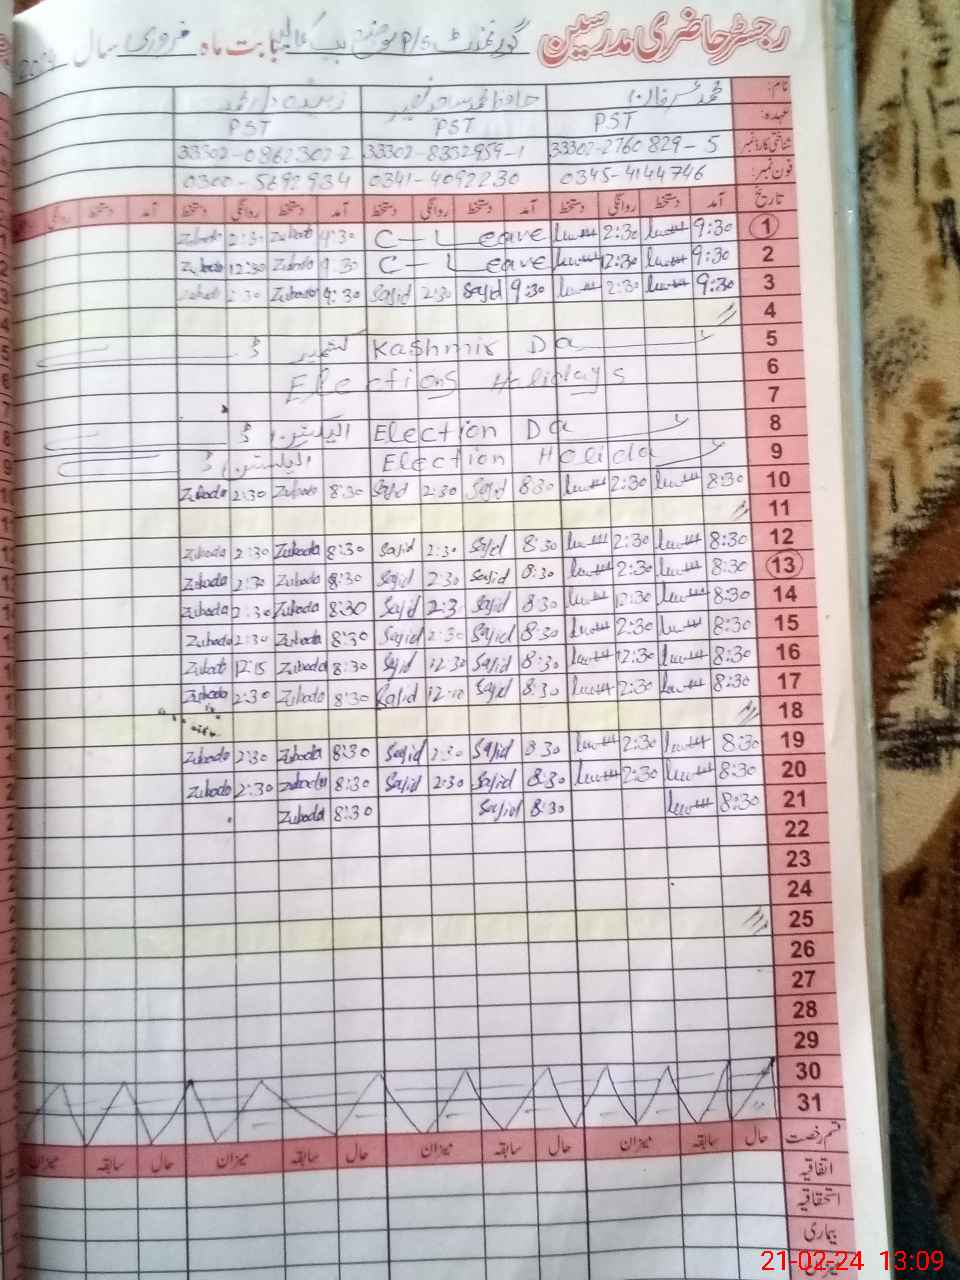 رجسٹر حاضری مدرسین گورنمنٹ P/S بابت ماہ فروری سال
نام: محمد عرفان
عہدہ: PST PST PST
شناختی کارڈ نمبر 33302-2760829-5 33302-8332959-1 33302-0862302-2
فون نمبر: 0345-4144746 0341-4092230 0300-5692934
تاریخ آمد دستخط روانگی دستخط آمد دستخط روانگی دستخط آمد دستخط روانگی دستخط
1 9:30 2:30 C-Leave 9:30 Zubada 2:30 Zubada
2 9:30 12:30 C-Leave 9:30 Zubada 12:30 Zubada
3 9:30 2:30 9:30 Sajid 2:30 Sajid 9:30 Zubada 2:30 Zubada
4
5 Kashmir Day کشمیر ڈے
6 Elections Holidays
7
8 Election Day الیکشن ڈے
9 Election Holiday الیکشن ڈے
10 8:30 2:30 8:30 Sajid 2:30 Sajid 8:30 Zubada 2:30 Zubada
11
12 8:30 2:30 8:30 Sajid 2:30 Sajid 8:30 Zubada 2:30 Zubada
13 8:30 2:30 8:30 Sajid 2:30 Sajid 8:30 Zubada 2:30 Zubada
14 8:30 12:30 8:30 Sajid 2:3 Sajid 8:30 Zubada 2:30 Zubada
15 8:30 2:30 8:30 Sajid 2:30 Sajid 8:30 Zubada 2:30 Zubada
16 8:30 12:30 8:30 Sajid 12:30 Sajid 8:30 Zubada 12:15 Zubada
17 8:30 2:30 8:30 Sajid Sajid 8:30 Zubada 2:30 Zubada
18
19 8:30 2:30 8:30 Sajid 2:30 Sajid 8:30 Zubada 2:30 Zubada
20 8:30 2:30 8:30 Sajid 2:30 Sajid 8:30 Zubada 2:30 Zubada
21 8:30 8:30 Sajid 8:30 Zubada
22
23
24
25
26
27
28
29
30
31
قسم رخصت حال سابقہ میزان حال سابقہ میزان حال سابقہ میزان حال سابقہ میزان
اتفاقیہ
استحقاقیہ
بیماری
میزان
21-02-24 13:09